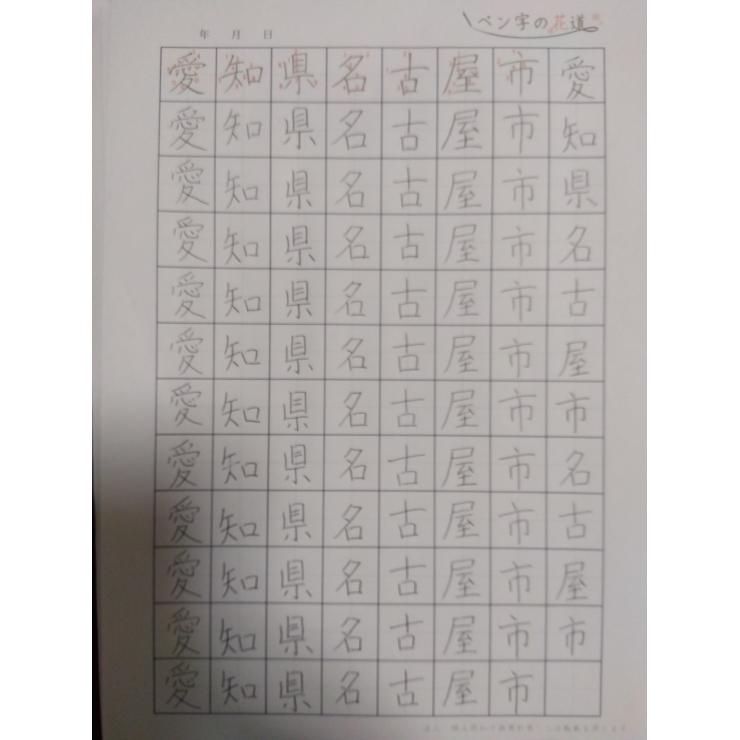 ペン字の花道
年 月 日
愛知県名古屋市愛
愛知県名古屋市知
愛知県名古屋市県
愛知県名古屋市名
愛知県名古屋市古
愛知県名古屋市屋
愛知県名古屋市市
愛知県名古屋市名
愛知県名古屋市古
愛知県名古屋市屋
愛知県名古屋市市
愛知県名古屋市